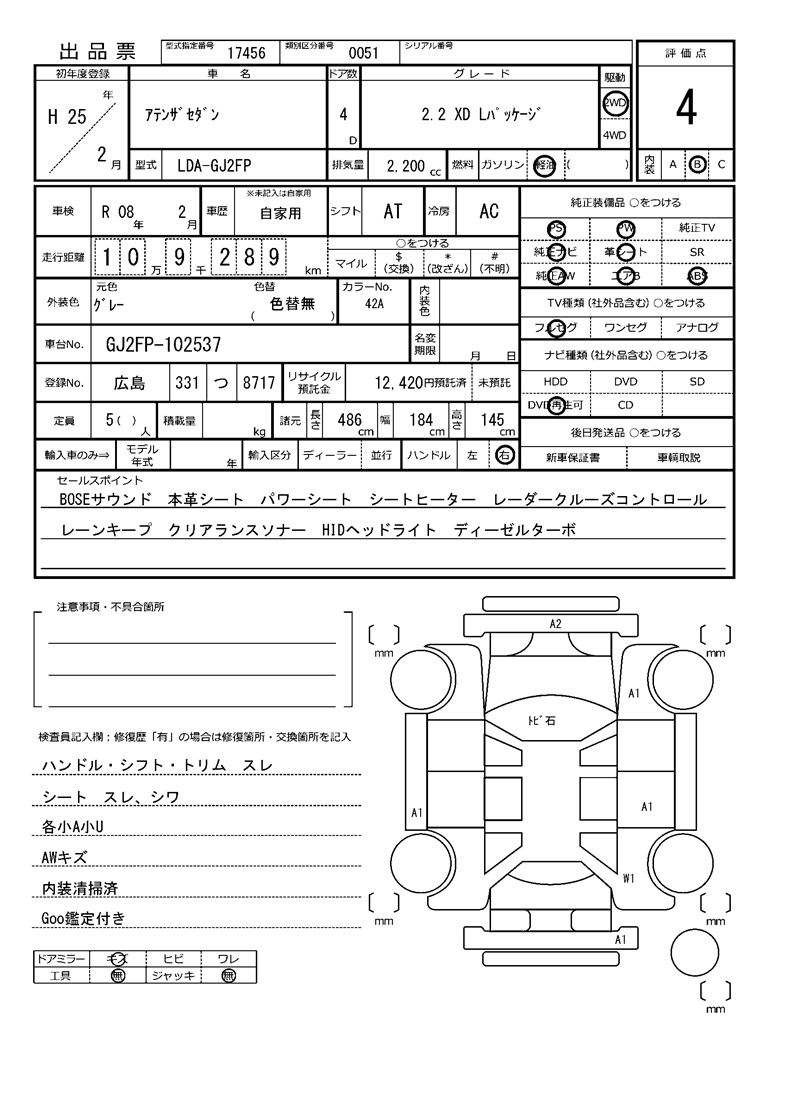 出品票 型式指定番号 17456 類別区分番号 0051 シリアル番号
評価点
初年度登録 車名 ドア数 グレード 駆動
H 25 年 2 月 アテンザセダン 4 D 2.2 XD Lパッケージ 2WD 4WD
4
型式 LDA-GJ2FP 排気量 2,200 cc 燃料 ガソリン 軽油 ( )
内装 A B C
車検 R 08 年 2 月 車歴 ※未記入は自家用 自家用 シフト AT 冷房 AC
走行距離 10 万 9 千 289 km ○をつける
マイル $ (交換) * (改ざん) # (不明)
外装色 元色 グレー 色替 ( 色替無 ) カラーNo. 42A 内装色
車台No. GJ2FP-102537 名変期限 月 日
登録No. 広島 331 つ 8717 リサイクル預託金 12,420円預託済 未預託
定員 5( ) 人 積載量 kg 諸元 長さ 486 cm 幅 184 cm 高さ 145 cm
輸入車のみ⇒ モデル年式 年 輸入区分 ディーラー 並行 ハンドル 左 右
純正装備品 ○をつける
PS PW 純正TV
純正ナビ 革シート SR
純正AW エアB ABS
TV種類(社外品含む) ○をつける
フルセグ ワンセグ アナログ
ナビ種類(社外品含む) ○をつける
HDD DVD SD
DVD再生可 CD
後日発送品 ○をつける
新車保証書 車輌取説
セールスポイント
BOSEサウンド 本革シート パワーシート シートヒーター レーダークルーズコントロール
レーンキープ クリアランスソナー HIDヘッドライト ディーゼルターボ
注意事項・不具合箇所
検査員記入欄：修復歴「有」の場合は修復箇所・交換箇所を記入
ハンドル・シフト・トリム スレ
シート スレ、シワ
各小A小U
AWキズ
内装清掃済
Goo鑑定付き
ドアミラー キズ ヒビ ワレ
工具 無 ジャッキ 無
A2
mm
mm
A1
トビ石
A1
A1
W1
mm
mm
A1
mm